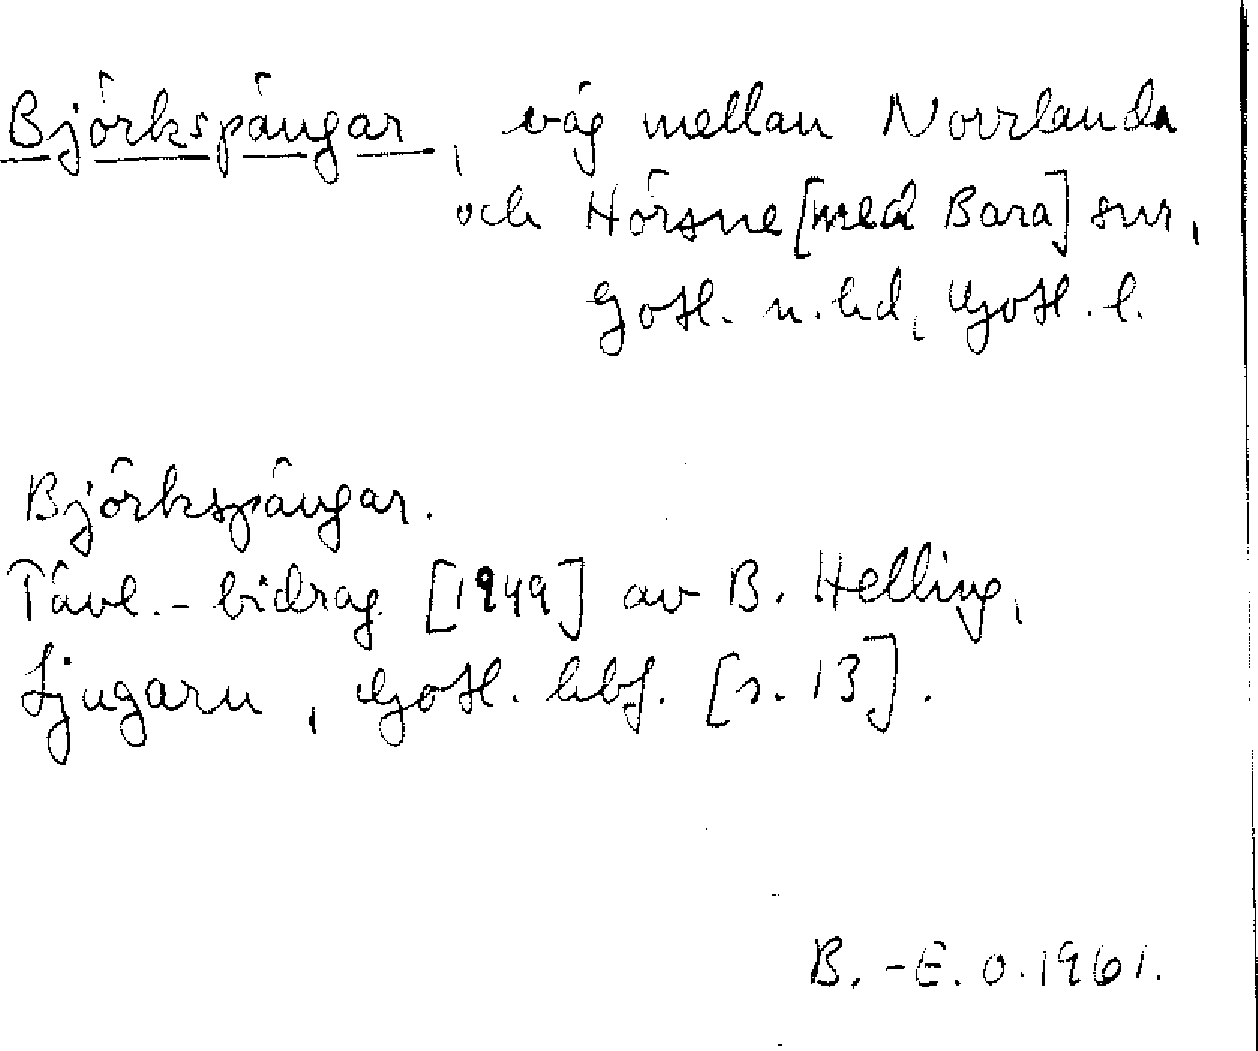 Björkspängar, väg mellan Norrlanda
och Hörsne [med Bara] snr,
Gotl. n. hd, Gotl. l.
Björkspängar.
Tävl.-bidrag [1949] av B. Helling,
Ljugarn, Gotl. hbf. [s. 13].
B.-E. O. 1961.